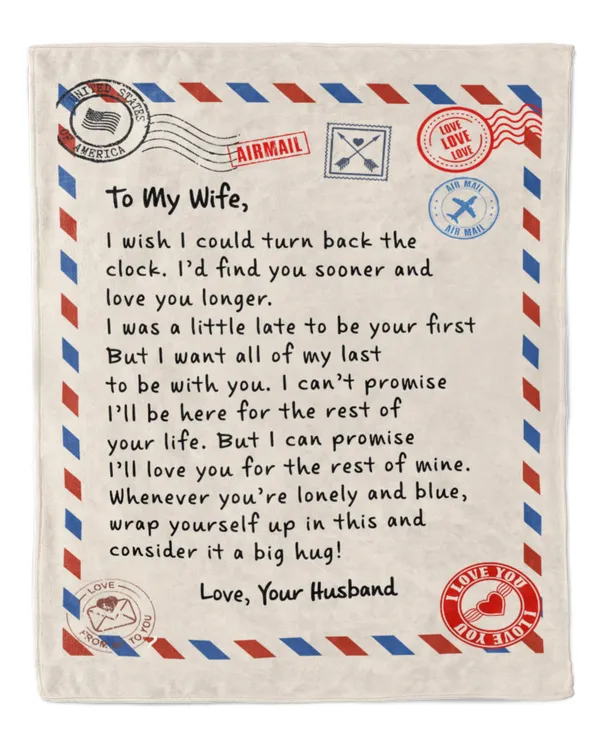 UNITED STATES
OF AMERICA
AIRMAIL
LOVE
LOVE
LOVE
AIR MAIL
AIR MAIL
To My Wife,
I wish I could turn back the
clock. I'd find you sooner and
love you longer.
I was a little late to be your first
But I want all of my last
to be with you. I can't promise
I'll be here for the rest of
your life. But I can promise
I'll love you for the rest of mine.
Whenever you're lonely and blue,
wrap yourself up in this and
consider it a big hug!
Love, Your Husband
LOVE
FROM TO YOU
I LOVE YOU
I LOVE YOU